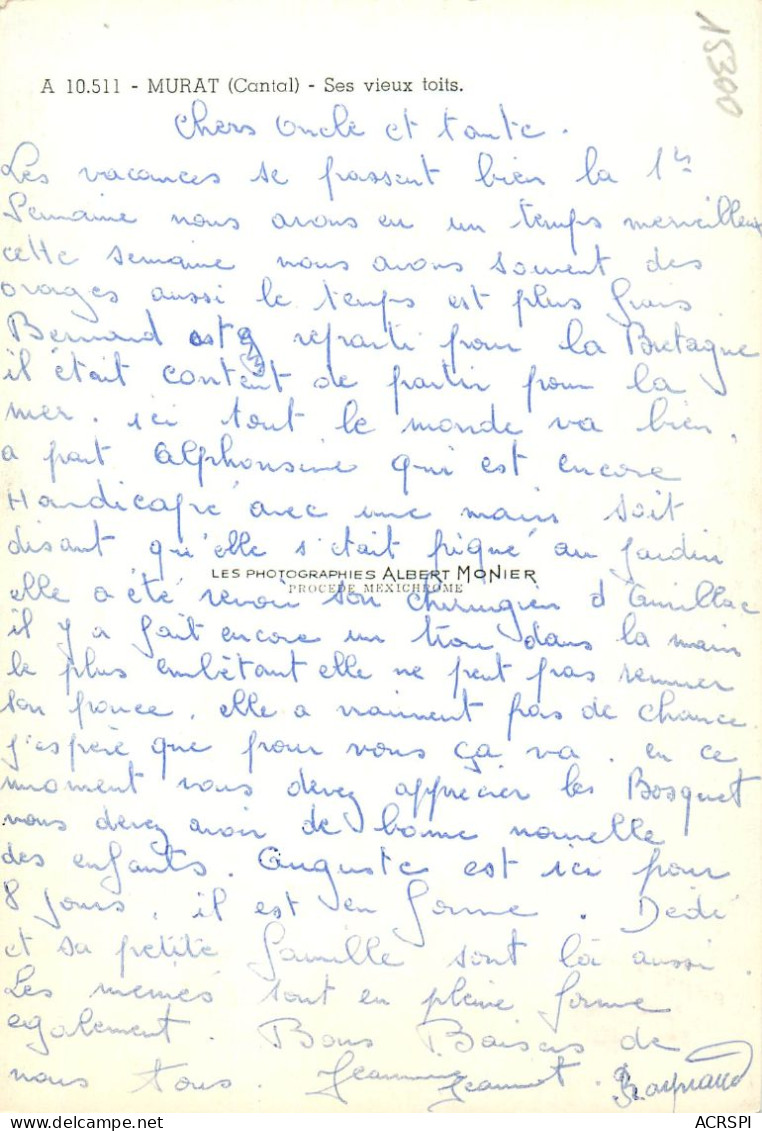 15300
A 10.511 - MURAT (Cantal) - Ses vieux toits.
Chers Oncle et tante.
Les vacances se passent bien la 1ère
Semaine nous avons eu un temps merveilleux
cette semaine nous avons souvent des
orages aussi le temps est plus frais
Bernard est reparti pour la Bretagne
il était content de partir pour la
mer. ici tout le monde va bien,
a part Alphonsine qui est encore
Handicapé avec une main soit
disant qu'elle s'était piqué au jardin
LES PHOTOGRAPHIES ALBERT MONIER
PROCÉDÉ MEXICHROME
elle a été revoir son chirurgien d'Aurillac
il y a fait encore un trou dans la main
le plus embêtant elle ne peut pas remuer
son pouce, elle a vraiment pas de chance.
j'espère que pour vous ça va. en ce
moment vous devez apprécier les Bosquet
vous devez avoir de bonne nouvelle
des enfants. Auguste est ici pour
8 jours, il est en forme. Dédé
et sa petite famille sont là aussi.
Les mémés sont en pleine forme
egalement. Bons Baisers de
nous tous. Jeannine Jeannot. Raynaud
ACRSPI